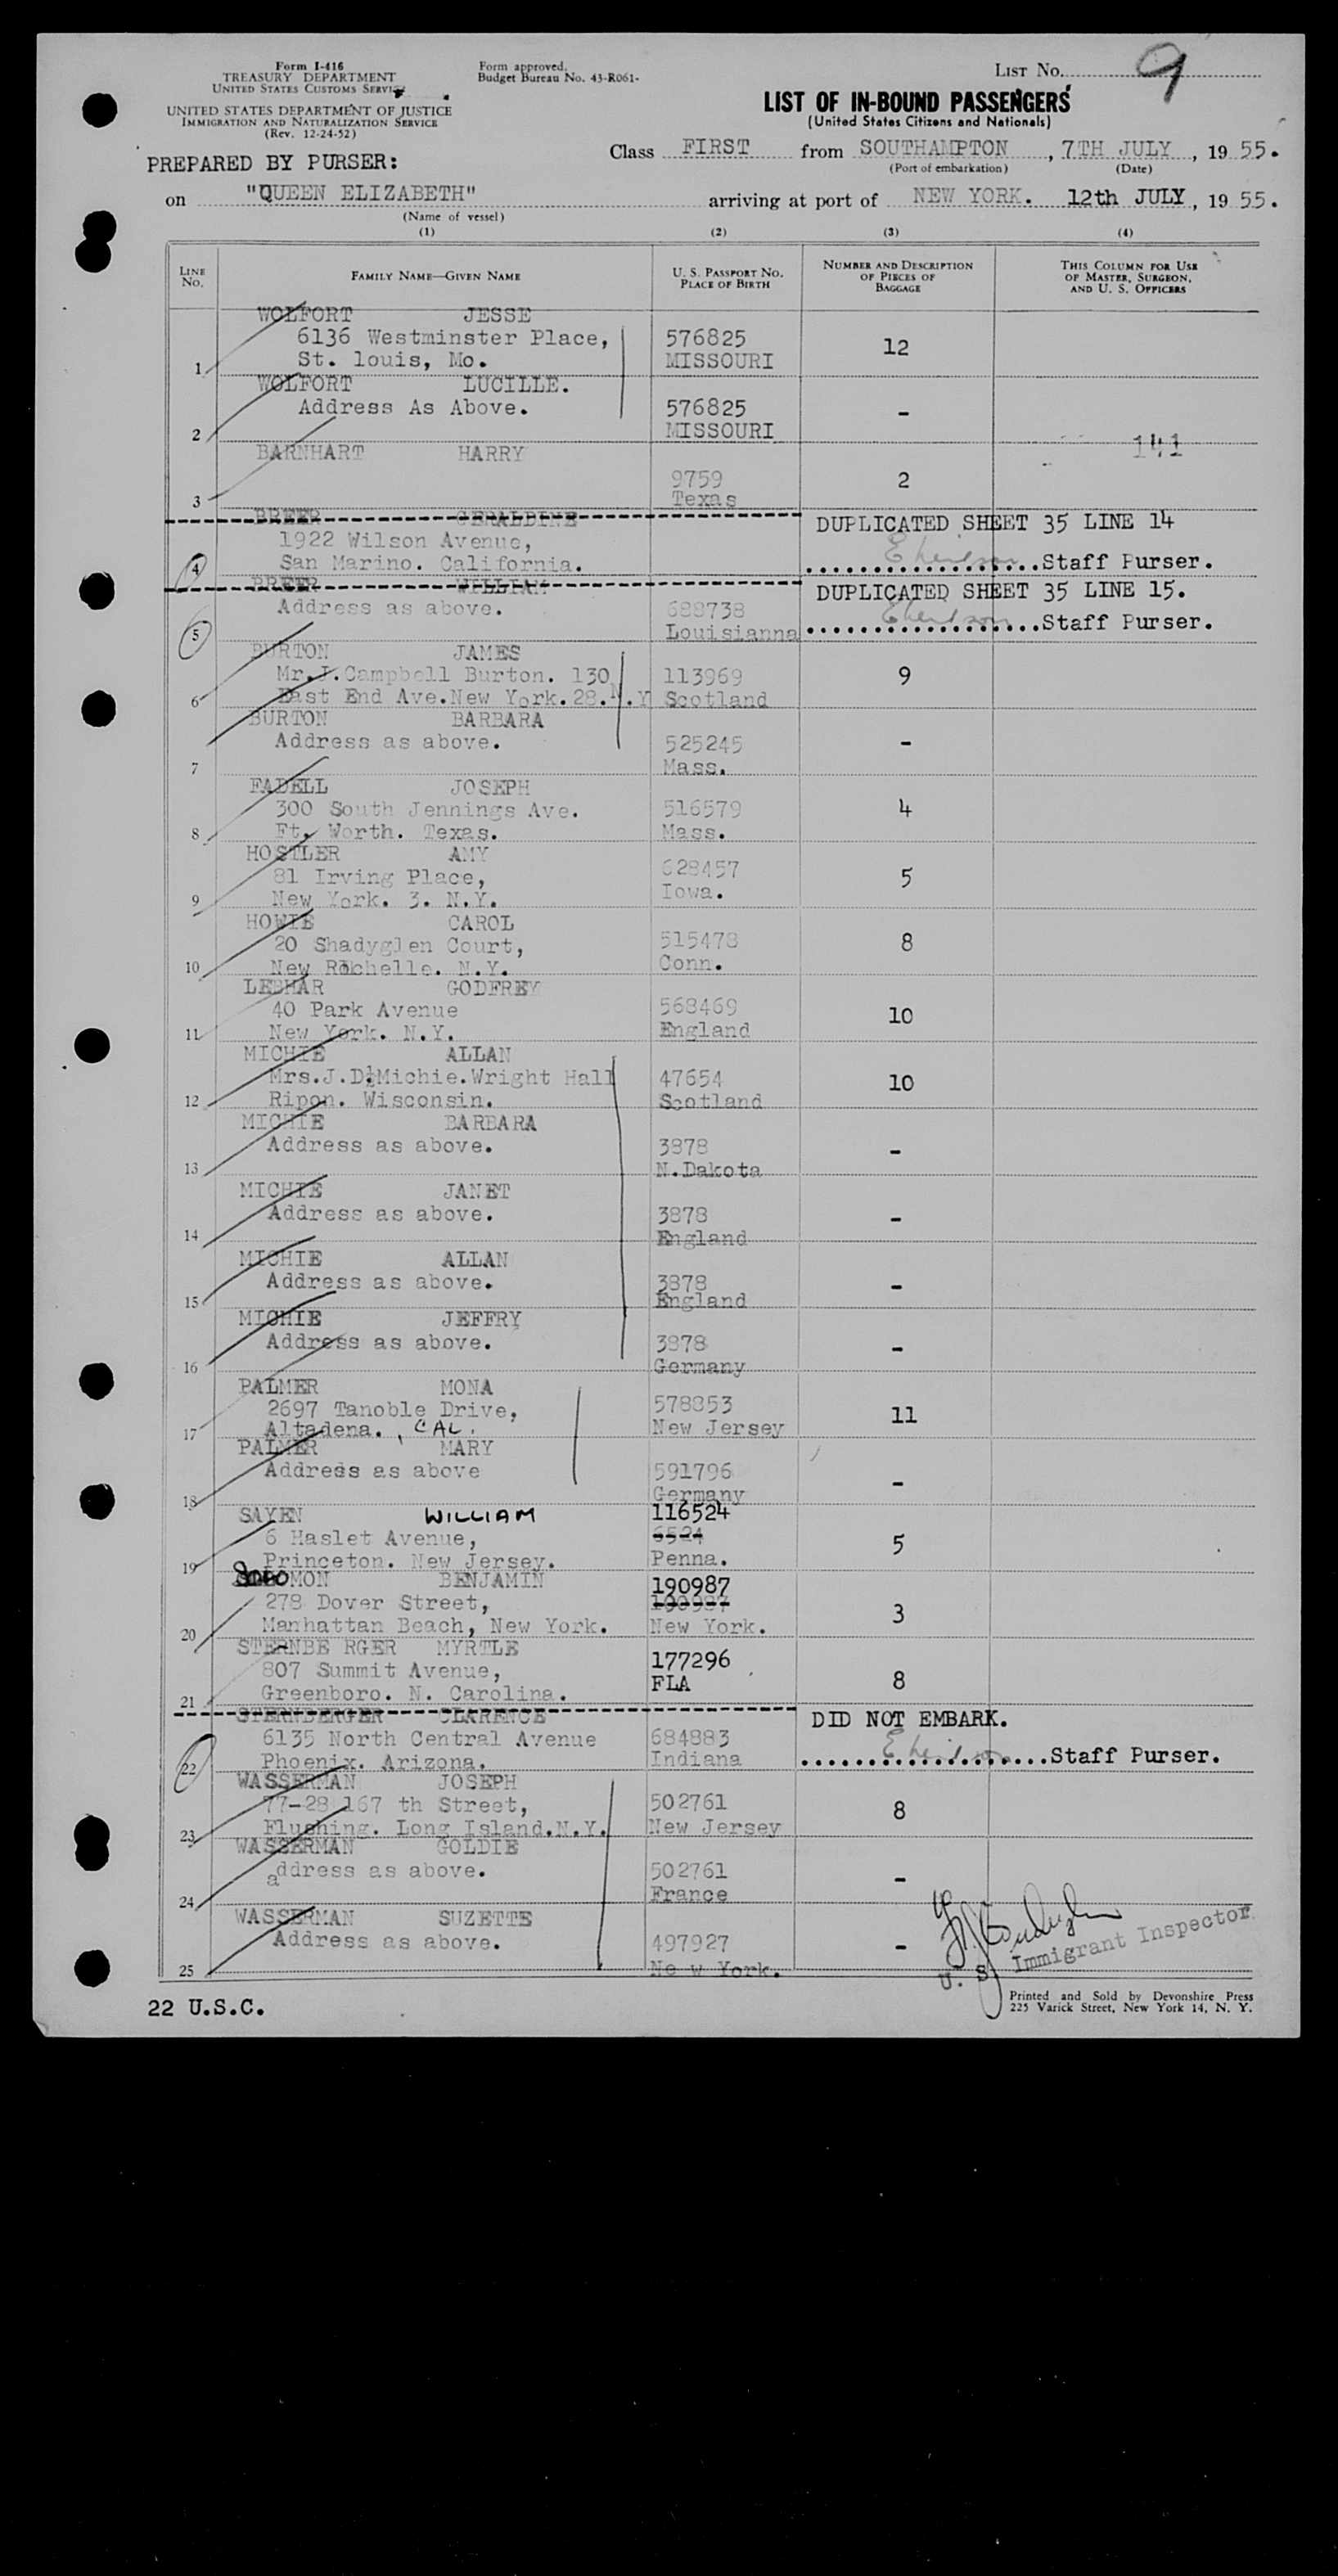 Form I-416
TREASURY DEPARTMENT
UNITED STATES CUSTOMS SERVICE
UNITED STATES DEPARTMENT OF JUSTICE
IMMIGRATION AND NATURALIZATION SERVICE
(Rev. 12-24-52)
Form approved.
Budget Bureau No. 43-R061-
LIST No. 9
LIST OF IN-BOUND PASSENGERS
(United States Citizens and Nationals)
PREPARED BY PURSER:
Class FIRST from SOUTHAMPTON, 7TH JULY, 1955.
(Port of embarkation) (Date)
on "QUEEN ELIZABETH" arriving at port of NEW YORK. 12th JULY, 1955.
(Name of vessel)
(1) (2) (3) (4)
LINE No. FAMILY NAME—GIVEN NAME U. S. PASSPORT NO. PLACE OF BIRTH NUMBER AND DESCRIPTION OF PIECES OF BAGGAGE THIS COLUMN FOR USE OF MASTER, SURGEON, AND U. S. OFFICERS
WOLFORT JESSE
6136 Westminster Place, 576825 12
1 St. louis, Mo. MISSOURI
WOLFORT LUCILLE.
Address As Above. 576825 -
2 MISSOURI
141
BARNHART HARRY
9759 2
3 Texas
BREER GERALDINE DUPLICATED SHEET 35 LINE 14
1922 Wilson Avenue,
4 San Marino. California. Staff Purser.
BREER WILLIAM DUPLICATED SHEET 35 LINE 15.
Address as above. 688738
5 Louisianna Staff Purser.
BURTON JAMES
Mr.J.Campbell Burton. 130 113969 9
6 East End Ave.New York.28.N.Y Scotland
BURTON BARBARA
Address as above. 525245 -
7 Mass.
FADELL JOSEPH
300 South Jennings Ave. 516579 4
8 Ft. Worth. Texas. Mass.
HOSTLER AMY
81 Irving Place, 628457 5
9 New York. 3. N.Y. Iowa.
HOWIE CAROL
20 Shadyglen Court, 515478 8
10 New Rochelle. N.Y. Conn.
LEBHAR GODFREY
40 Park Avenue 568469 10
11 New York. N.Y. England
MICHIE ALLAN
Mrs.J.D.Michie.Wright Hall 47654 10
12 Ripon. Wisconsin. Scotland
MICHIE BARBARA
Address as above. 3878 -
13 N.Dakota
MICHIE JANET
Address as above. 3878 -
14 England
MICHIE ALLAN
Address as above. 3878 -
15 England
MICHIE JEFFRY
Address as above. 3878 -
16 Germany
PALMER MONA
2697 Tanoble Drive, 578853 11
17 Altadena., CAL. New Jersey
PALMER MARY
Address as above 591796 -
18 Germany
SAYEN WILLIAM 116524
6 Haslet Avenue, 6524 5
19 Princeton. New Jersey. Penna.
SOLOMON BENJAMIN 190987
278 Dover Street, 190987 3
20 Manhattan Beach, New York. New York.
STERNBE RGER MYRTLE 177296
807 Summit Avenue, FLA 8
21 Greenboro. N. Carolina.
STERNBERGER CLARENCE DID NOT EMBARK.
6135 North Central Avenue 684883
22 Phoenix. Arizona. Indiana Staff Purser.
WASSERMAN JOSEPH
77-28 167 th Street, 502761 8
23 Flushing. Long Island.N.Y. New Jersey
WASSERMAN GOLDIE
address as above. 502761 -
24 France
WASSERMAN SUZETTE
Address as above. 497927 -
25 Ne w York.
U. S. Immigrant Inspector
22 U.S.C.
Printed and Sold by Devonshire Press
225 Varick Street, New York 14, N. Y.